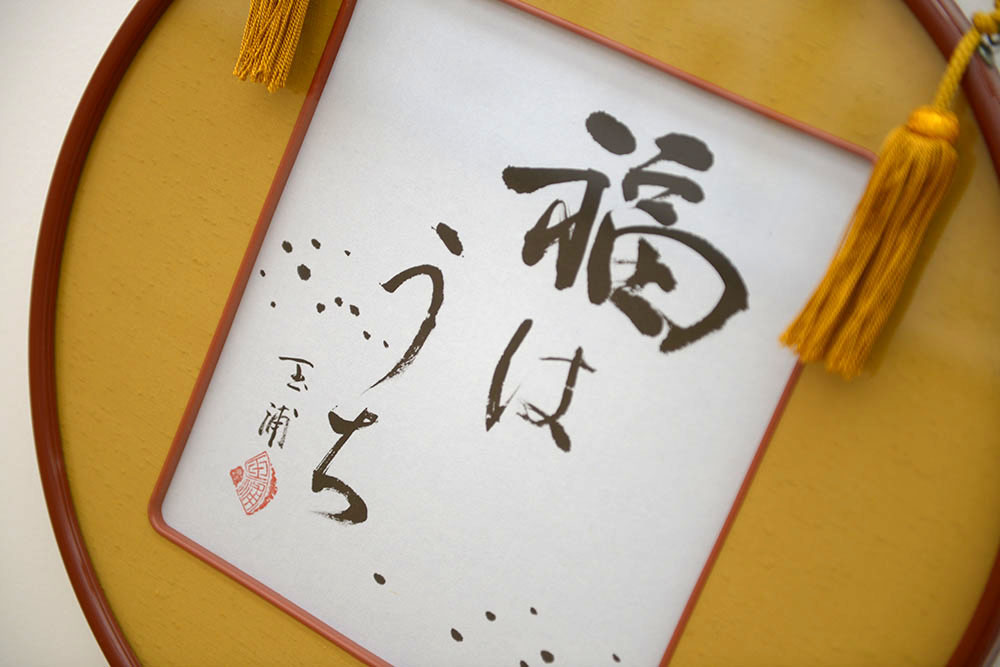 福は
うち
玉浦